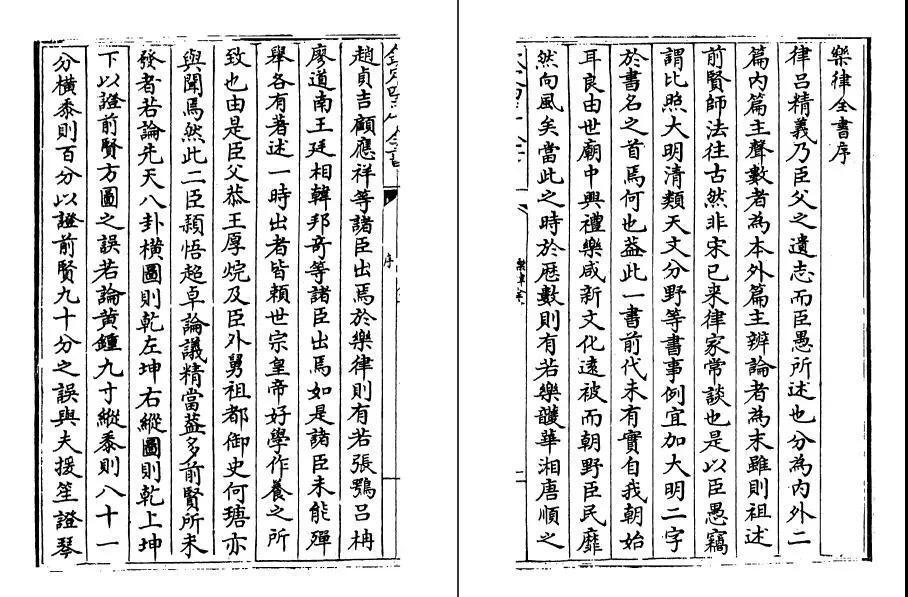 樂律全書序
律吕精義乃臣父之遺志而臣愚所述也分為内外二
篇内篇主聲數者為本外篇主辨論者為末雖則祖述
前賢師法往古然非宋已来律家常談也是以臣愚竊
謂比照大明清類天文分野等書事例宜加大明二字
於書名之首焉何也葢此一書前代未有實自我朝始
耳良由世廟中興禮樂咸新文化遠被而朝野臣民靡
然向風矣當此之時於厯數則有若樂頀華湘唐順之
樂律全
二
欽定四庫全書
序
趙貞吉顧應祥等諸臣出焉於樂律則有若張鶚吕柟
廖道南王廷相韓邦竒等諸臣出焉如是諸臣未能殫
舉各有著述一時出者皆頼世宗皇帝好學作養之所
致也由是臣父恭王厚烷及臣外舅祖都御史何瑭亦
與聞焉然此二臣頴悟超卓論議精當葢多前賢所未
發者若論先天八卦横圖則乾左坤右縱圖則乾上坤
下以證前賢方圖之誤若論黄鍾九寸縱黍則八十一
分横黍則百分以證前賢九十分之誤與夫援笙證琴